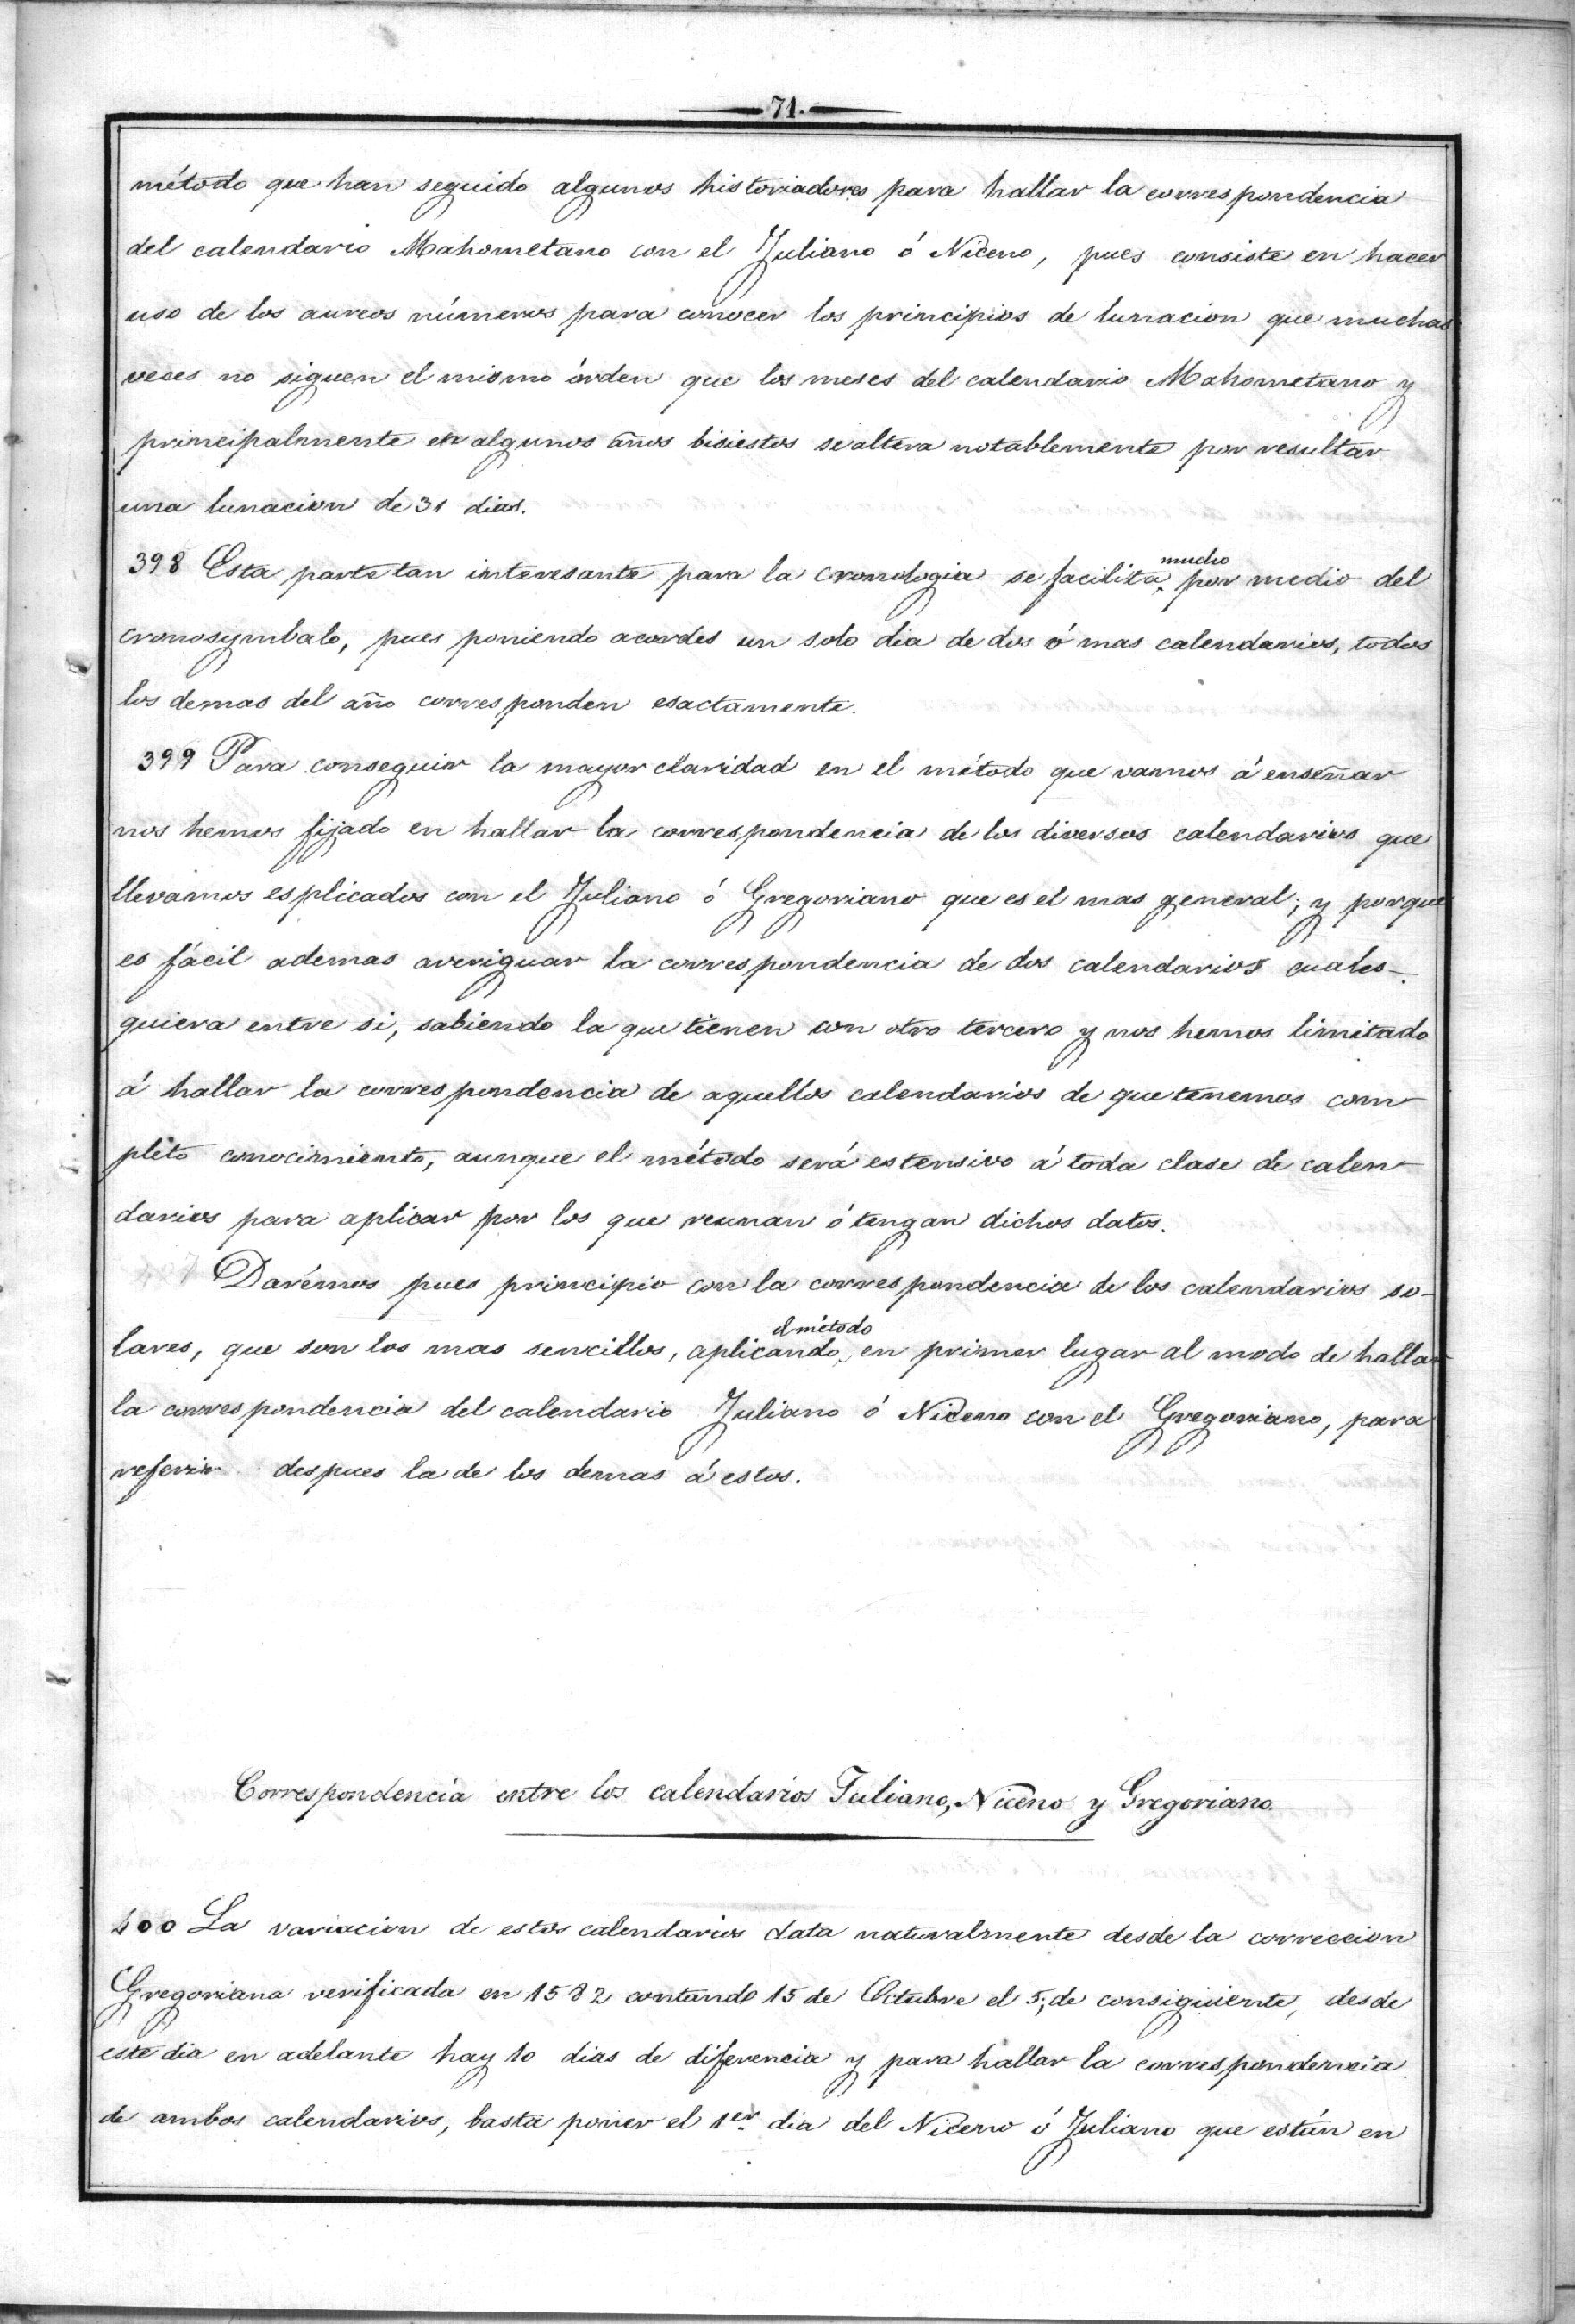 71.
método que han seguido algunos historiadores para hallar la correspondencia
del calendario Mahometano con el Juliano ó Niceno, pues consiste en hacer
uso de los aureos números para conocer los principios de lunacion que muchas
veces no siguen el mismo órden que los meses del calendario Mahometano y
principalmente en algunos años bisiestos se altera notablemente por resultar
una lunacion de 31 dias.
398 Esta parte tan interesante para la cronologia se facilita mucho por medio del
cronosymbalo, pues poniendo acordes un solo dia de dos ó mas calendarios, todos
los demas del año corresponden esactamente.
399 Para conseguir la mayor claridad en el método que vamos á enseñar
nos hemos fijado en hallar la correspondencia de los diversos calendarios que
llevamos esplicados con el Juliano ó Gregoriano que es el mas general; y porque
es fácil ademas averiguar la correspondencia de dos calendarios cuales-
quiera entre si, sabiendo la que tienen con otro tercero y nos hemos limitado
á hallar la correspondencia de aquellos calendarios de que tenemos com
pleto conocimiento, aunque el método será estensivo á toda clase de calen
darios para aplicar por los que reunan ó tengan dichos datos.
Darémos pues principio con la correspondencia de los calendarios so-
lares, que son los mas sencillos, aplicando el método en primer lugar al modo de hallar
la correspondencia del calendario Juliano ó Niceno con el Gregoriano, para
referir despues la de los demas á estos.
Correspondencia entre los calendarios Juliano, Niceno y Gregoriano
400 La variacion de estos calendarios data naturalmente desde la correccion
Gregoriana verificada en 1582 contando 15 de Octubre el 5; de consiguiente, desde
este dia en adelante hay 10 dias de diferencia y para hallar la correspondencia
de ambos calendarios, basta poner el 1er. dia del Niceno ó Juliano que están en